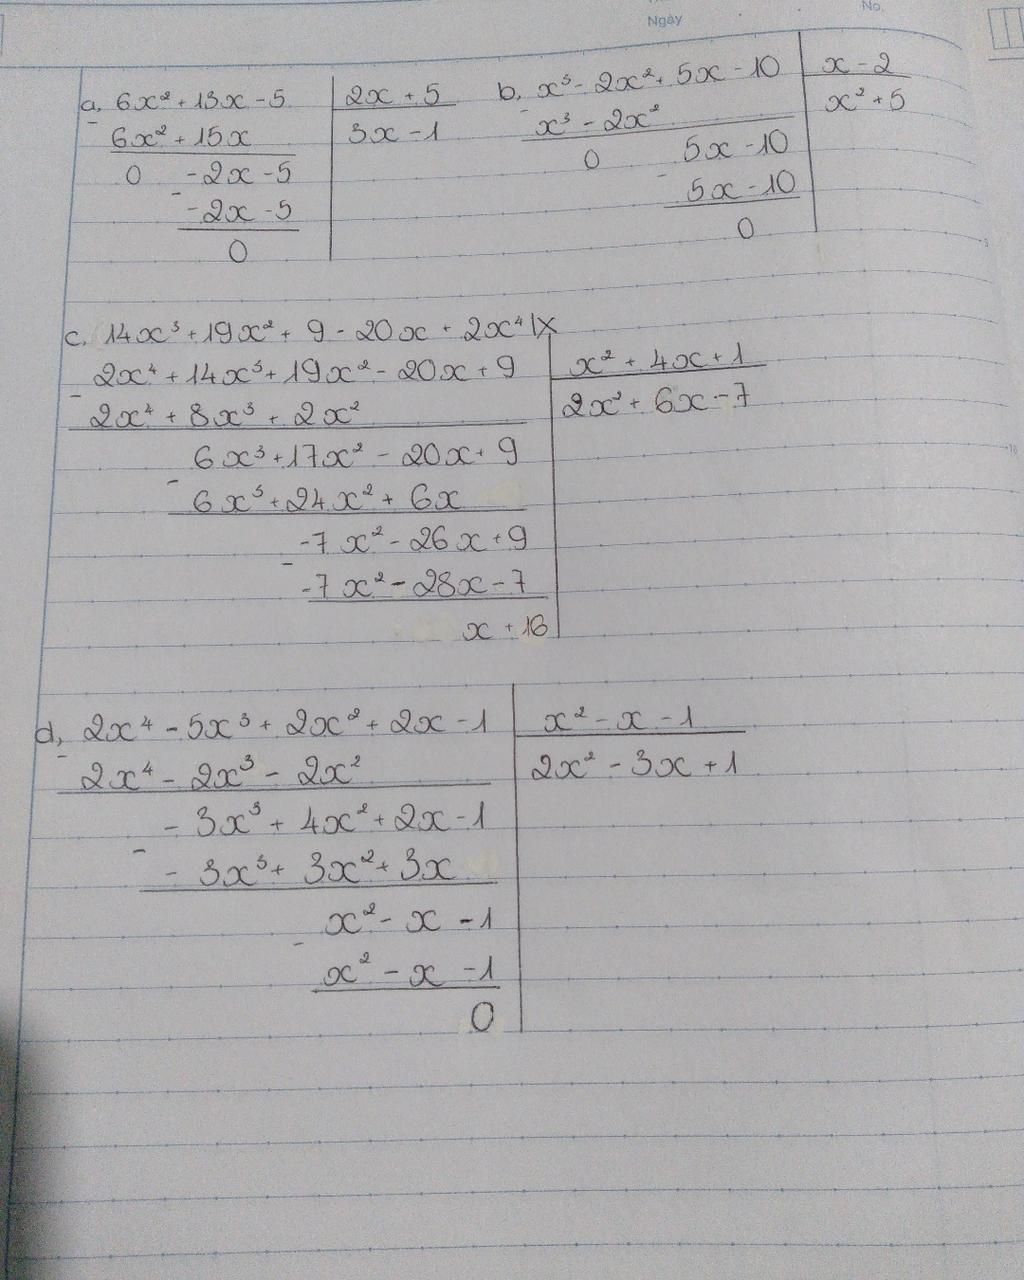 Ngày
No.
a, 6x² + 13x - 5 | 2x + 5
- 6x² + 15x | 3x - 1
0 - 2x - 5
- - 2x - 5
0
b, x³ - 2x² + 5x - 10 | x - 2
- x³ - 2x² | x² + 5
0 5x - 10
- 5x - 10
0
c, 14x³ + 19x² + 9 - 20x + 2x⁴
2x⁴ + 14x³ + 19x² - 20x + 9 | x² + 4x + 1
- 2x⁴ + 8x³ + 2x² | 2x² + 6x - 7
6x³ + 17x² - 20x + 9
- 6x³ + 24x² + 6x
-7x² - 26x + 9
- -7x² - 28x - 7
x + 16
d, 2x⁴ - 5x³ + 2x² + 2x - 1 | x² - x - 1
- 2x⁴ - 2x³ - 2x² | 2x² - 3x + 1
- 3x³ + 4x² + 2x - 1
- - 3x³ + 3x² + 3x
x² - x - 1
- x² - x - 1
0
5
10